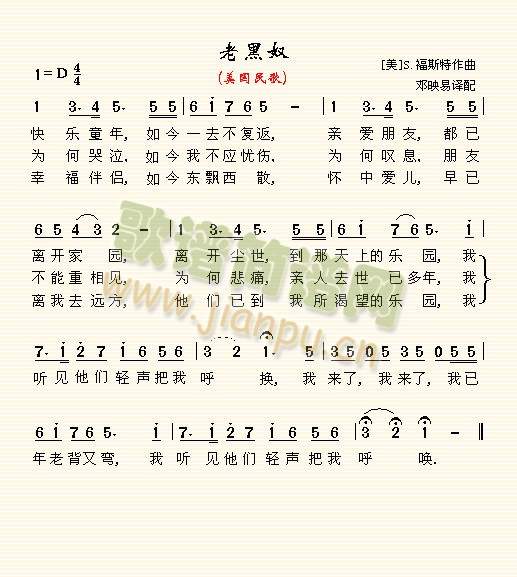 老黑奴
1=D 4/4
(美国民歌)
[美]S.福斯特作曲
邓映易译配
1 3· 4 5· 5 5 | 6 1 7 6 5 – | 1 3· 4 5· 5 5 |
快 乐 童 年, 如 今 一 去 不 复 返, 亲 爱 朋 友, 都 已
为 何 哭 泣, 如 今 我 不 应 忧 伤, 为 何 叹 息, 朋 友
幸 福 伴 侣, 如 今 东 飘 西 散, 怀 中 爱 儿, 早 已
6 5 4 3 2 – | 1 3· 4 5· 5 5 | 6 1 7 6 5· 1 |
离 开 家 园, 离 开 尘 世, 到 那 天 上 的 乐 园, 我
不 能 重 相 见, 为 何 悲 痛, 亲 人 去 世 已 多 年, 我
离 我 去 远 方, 他 们 已 到 我 所 渴 望 的 乐 园, 我
7· 1 2 1 7 1 6 1 | 3 2 1· 5 | 3 5 0 5 3 5 0 5 5 |
听 见 他 们 轻 声 把 我 呼 换, 我 来 了, 我 来 了, 我 已
6 1 7 6 5· 1 | 7· 1 2 1 6 5 6 5 | 3 2 1 – ‖
年 老 背 又 弯, 我 听 见 他 们 轻 声 把 我 呼 唤.
歌谱简谱网
www.jianpu.cn